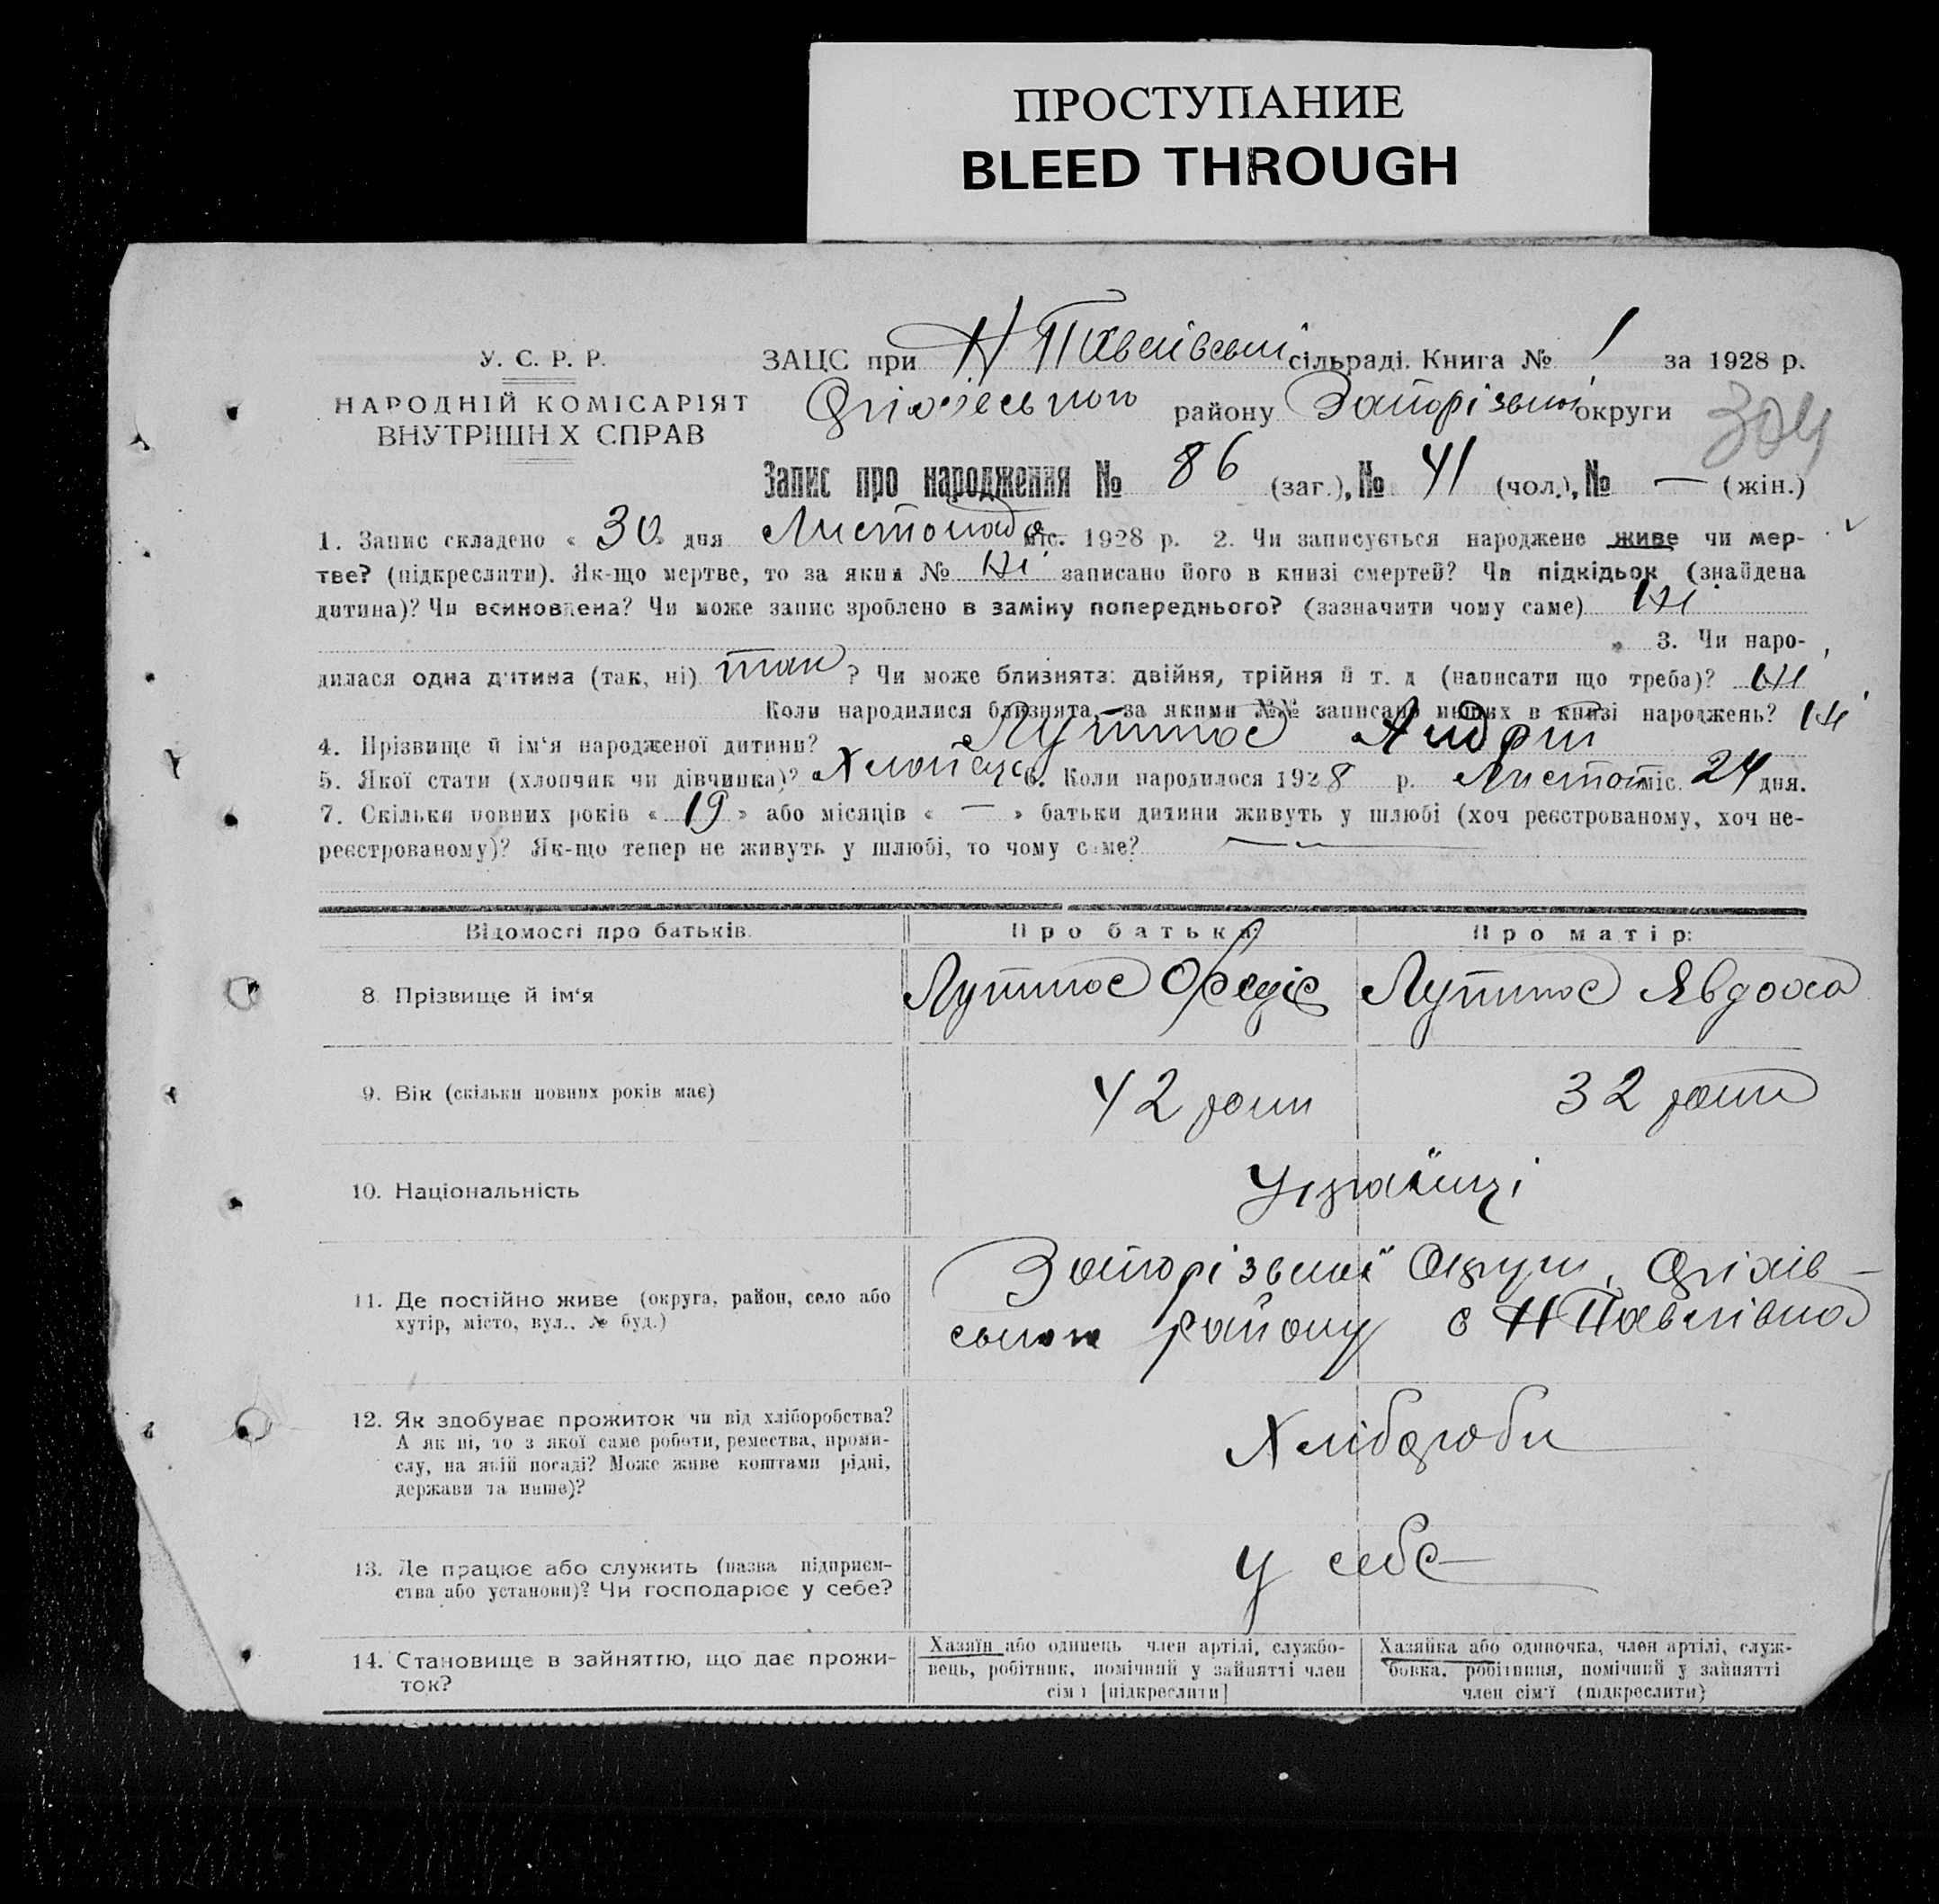 ПРОСТУПАНИЕ
BLEED THROUGH
У. С. Р. Р.
НАРОДНІЙ КОМІСАРІЯТ
ВНУТРІШН Х СПРАВ
ЗАЦС при Н Павлівській сільраді. Книга № 1 за 1928 р.
Оріхівського району Запорізької округи
304
Запис про народження № 86 (заг.), № 41 (чол.), № — (жін.)
1. Запис складено « 30 » дня Листопада міс. 1928 р. 2. Чи записується народжене живе чи мер-
тве? (підкреслити). Як-що мертве, то за яким № Ні записано його в книзі смертей? Чи підкідьок (знайдена
дитина)? Чи всиновлена? Чи може запис зроблено в заміну попереднього? (зазначити чому саме) Ні
3. Чи наро-
дилася одна дитина (так, ні) так ? Чи може близнята: двійня, трійня й т. д (написати що треба)? Ні
Коли народилися близнята, за якими №№ записано инших в книзі народжень? Ні
4. Прізвище й ім'я народженої дитини? Андрій
5. Якої стати (хлопчик чи дівчинка)? Хлопець 6. Коли народилося 1928 р. Листоп міс. 24 дня.
7. Скільки повних років « 19 » або місяців « — » батьки дитини живуть у шлюбі (хоч реєстрованому, хоч не-
реєстрованому)? Як-що тепер не живуть у шлюбі, то чому саме? —
Відомості про батьків. Про батька: Про матір:
8. Прізвище й ім'я Явдоха
9. Вік (скільки повних років має) 42 роки 32 роки
10. Національність Українці
11. Де постійно живе (округа, район, село або
хутір, місто, вул., № буд.)
Запорізької Округи, Оріхів-
ського району с Н Павлівка
12. Як здобуває прожиток чи від хліборобства?
А як ні, то з якої саме роботи, ремества, проми-
слу, на якій посаді? Може живе коштами рідні,
держави та инше)?
Хлібороби
13. Де працює або служить (назва підприєм-
ства або установи)? Чи господарює у себе?
у себе
14. Становище в зайняттю, що дає прожи-
ток?
Хазяїн або одинець член артілі, службо-
вець, робітник, помічний у зайнятті член
сім ї [підкреслити]
Хазяйка або одиночка, член артілі, служ-
бовка, робітниця, помічний у зайнятті
член сім'ї (підкреслити)